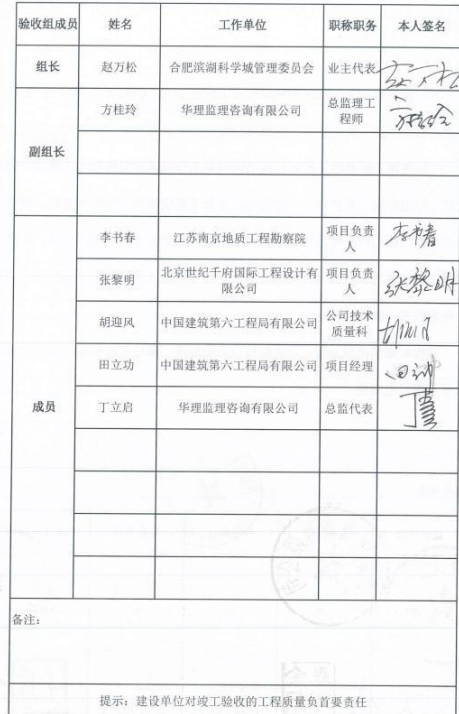 验收组成员 姓名 工作单位 职称职务 本人签名
组长 赵万松 合肥滨湖科学城管理委员会 业主代表 赵万松
副组长 方桂玲 华理监理咨询有限公司 总监理工
程师 方桂玲
成员 李书春 江苏南京地质工程勘察院 项目负责
人 李书春
张黎明 北京世纪千府国际工程设计有
限公司 项目负责
人 张黎明
胡迎风 中国建筑第六工程局有限公司 公司技术
质量科
田立功 中国建筑第六工程局有限公司 项目经理 田立功
丁立启 华理监理咨询有限公司 总监代表
备注：
提示：建设单位对竣工验收的工程质量负首要责任